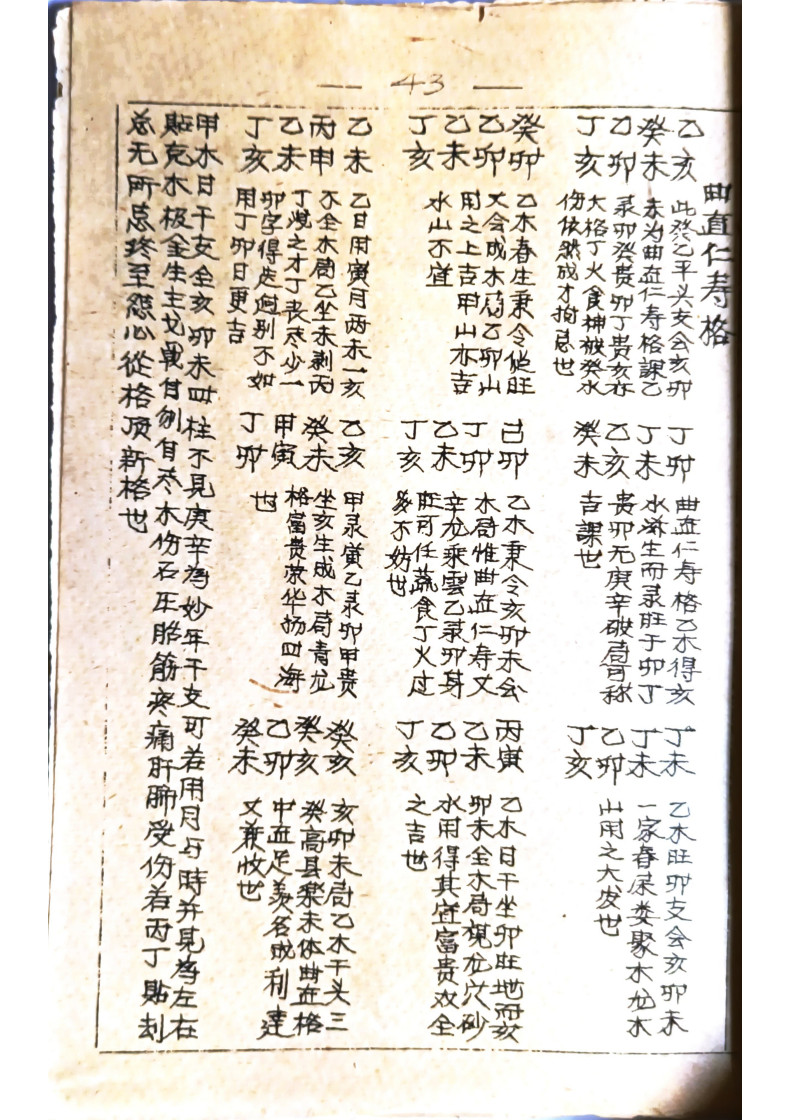 43
曲直仁寿格
乙亥
癸未
乙卯
丁亥
此癸乙平头支会亥卯
未为曲直仁寿格課乙
录卯癸贵卯丁贵亥亦
大格丁火食神被癸水
伤依然成才拘忌也
丁卯
丁未
乙亥
癸未
曲直仁寿格乙木得亥
水滋生而录旺于卯丁
贵卯无庚辛破局可称
吉課也
丁未
丁未
乙卯
丁亥
乙木旺卯支会亥卯未
一家春录娄聚木龙木
山用之大发也
癸卯
乙卯
乙未
丁亥
乙木春生秉令从旺
又会成木局乙卯山
用之上吉甲山亦吉
水山不宜
己卯
丁卯
乙未
丁亥
乙木秉令亥卯未会
木局惟曲直仁寿又
辛龙乘雲乙录卯身
旺可任蔬食丁火过
多不妨也
丙寅
乙未
乙卯
丁亥
乙木日干坐卯旺地而亥
卯未全木局視龙穴砂
水用得其宜富贵双全
之吉也
乙未
丙申
乙未
丁亥
乙日用寅月两未一亥
不全木局乙坐未剥丙
丁洩之才丁丧尽少一
卯字得走过别不如
用丁卯日更吉
乙亥
癸未
甲寅
丁卯
甲录寅乙录卯甲贵
坐亥生成木局青龙
格富贵荣华扬四海
也
癸亥
癸亥
乙卯
癸未
亥卯未局乙木干头三
癸高县桼未体曲直格
中直足羡名成利達
又兼收也
甲木日干支全亥卯未四柱不見庚辛为妙年干支可若用月与時并見为左右
貼克木极金生主戈戰甘刎自尽木伤石压胎筋疼痛肝肺受伤若丙丁貼刦
总无所忌终至怨心從格顶新格也